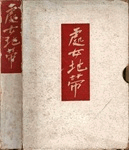 處女地帶
處女地帶